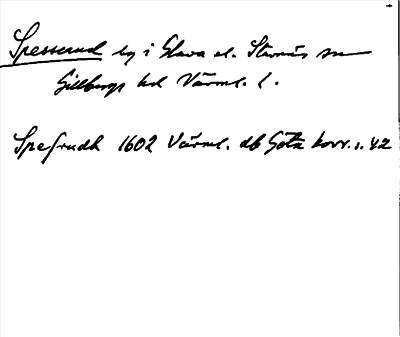 Spesserud by i Glava el. Stavnäs sn
Gillbergs hd Värml. l.
Spesrudh 1602 Värml. db Göta hovr. s. 42